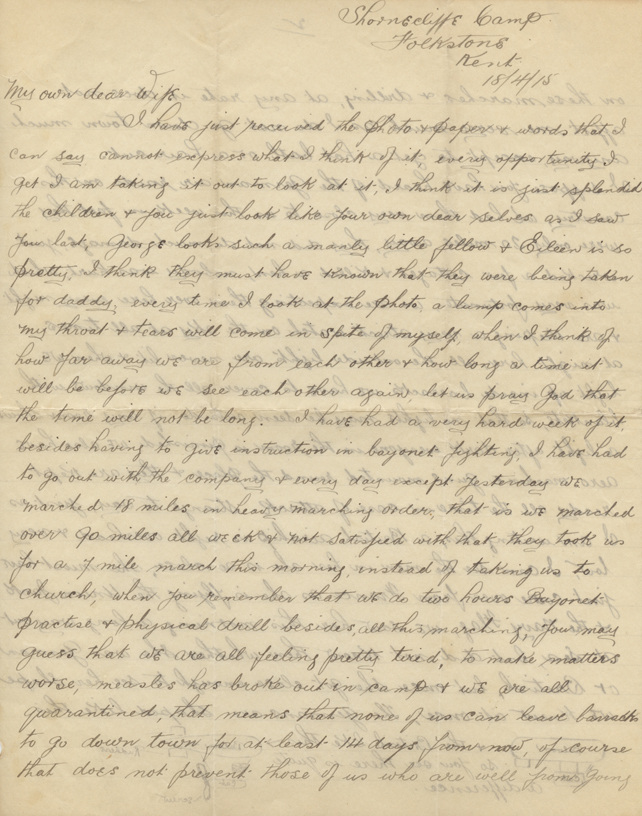 Shornecliffe Camp
Folkstone
Kent
18/4/15
My own dear Wife
I have just received the photo & paper & words that I
can say cannot express what I think of it, every opportunity I
get I am taking it out to look at it, I think it is just splendid
the children & you just look like your own dear selves as I saw
you last, George looks such a manly little fellow & Eileen is so
pretty, I think they must have known that they were being taken
for daddy, every time I look at the photo a lump comes into
my throat & tears will come in spite of myself, when I think of
how far away we are from each other & how long a time it
will be before we see each other again let us pray God that
the time will not be long. I have had a very hard week of it,
besides having to give instruction in bayonet fighting I have had
to go out with the company & every day except yesterday we
marched 18 miles in heavy marching order, that is we marched
over 90 miles all week & not satisfied with that they took us
for a 7 mile march this morning, instead of taking us to
church, when you remember that we do two hours Bayonet
practise & physical drill besides, all this marching, you may
guess that we are all feeling pretty tired, to make matters
worse, measles has broke out in camp & we are all
quarantined, that means that none of us can leave barracks
to go down town for at least 14 days from now, of course
that does not prevent those of us who are well from going